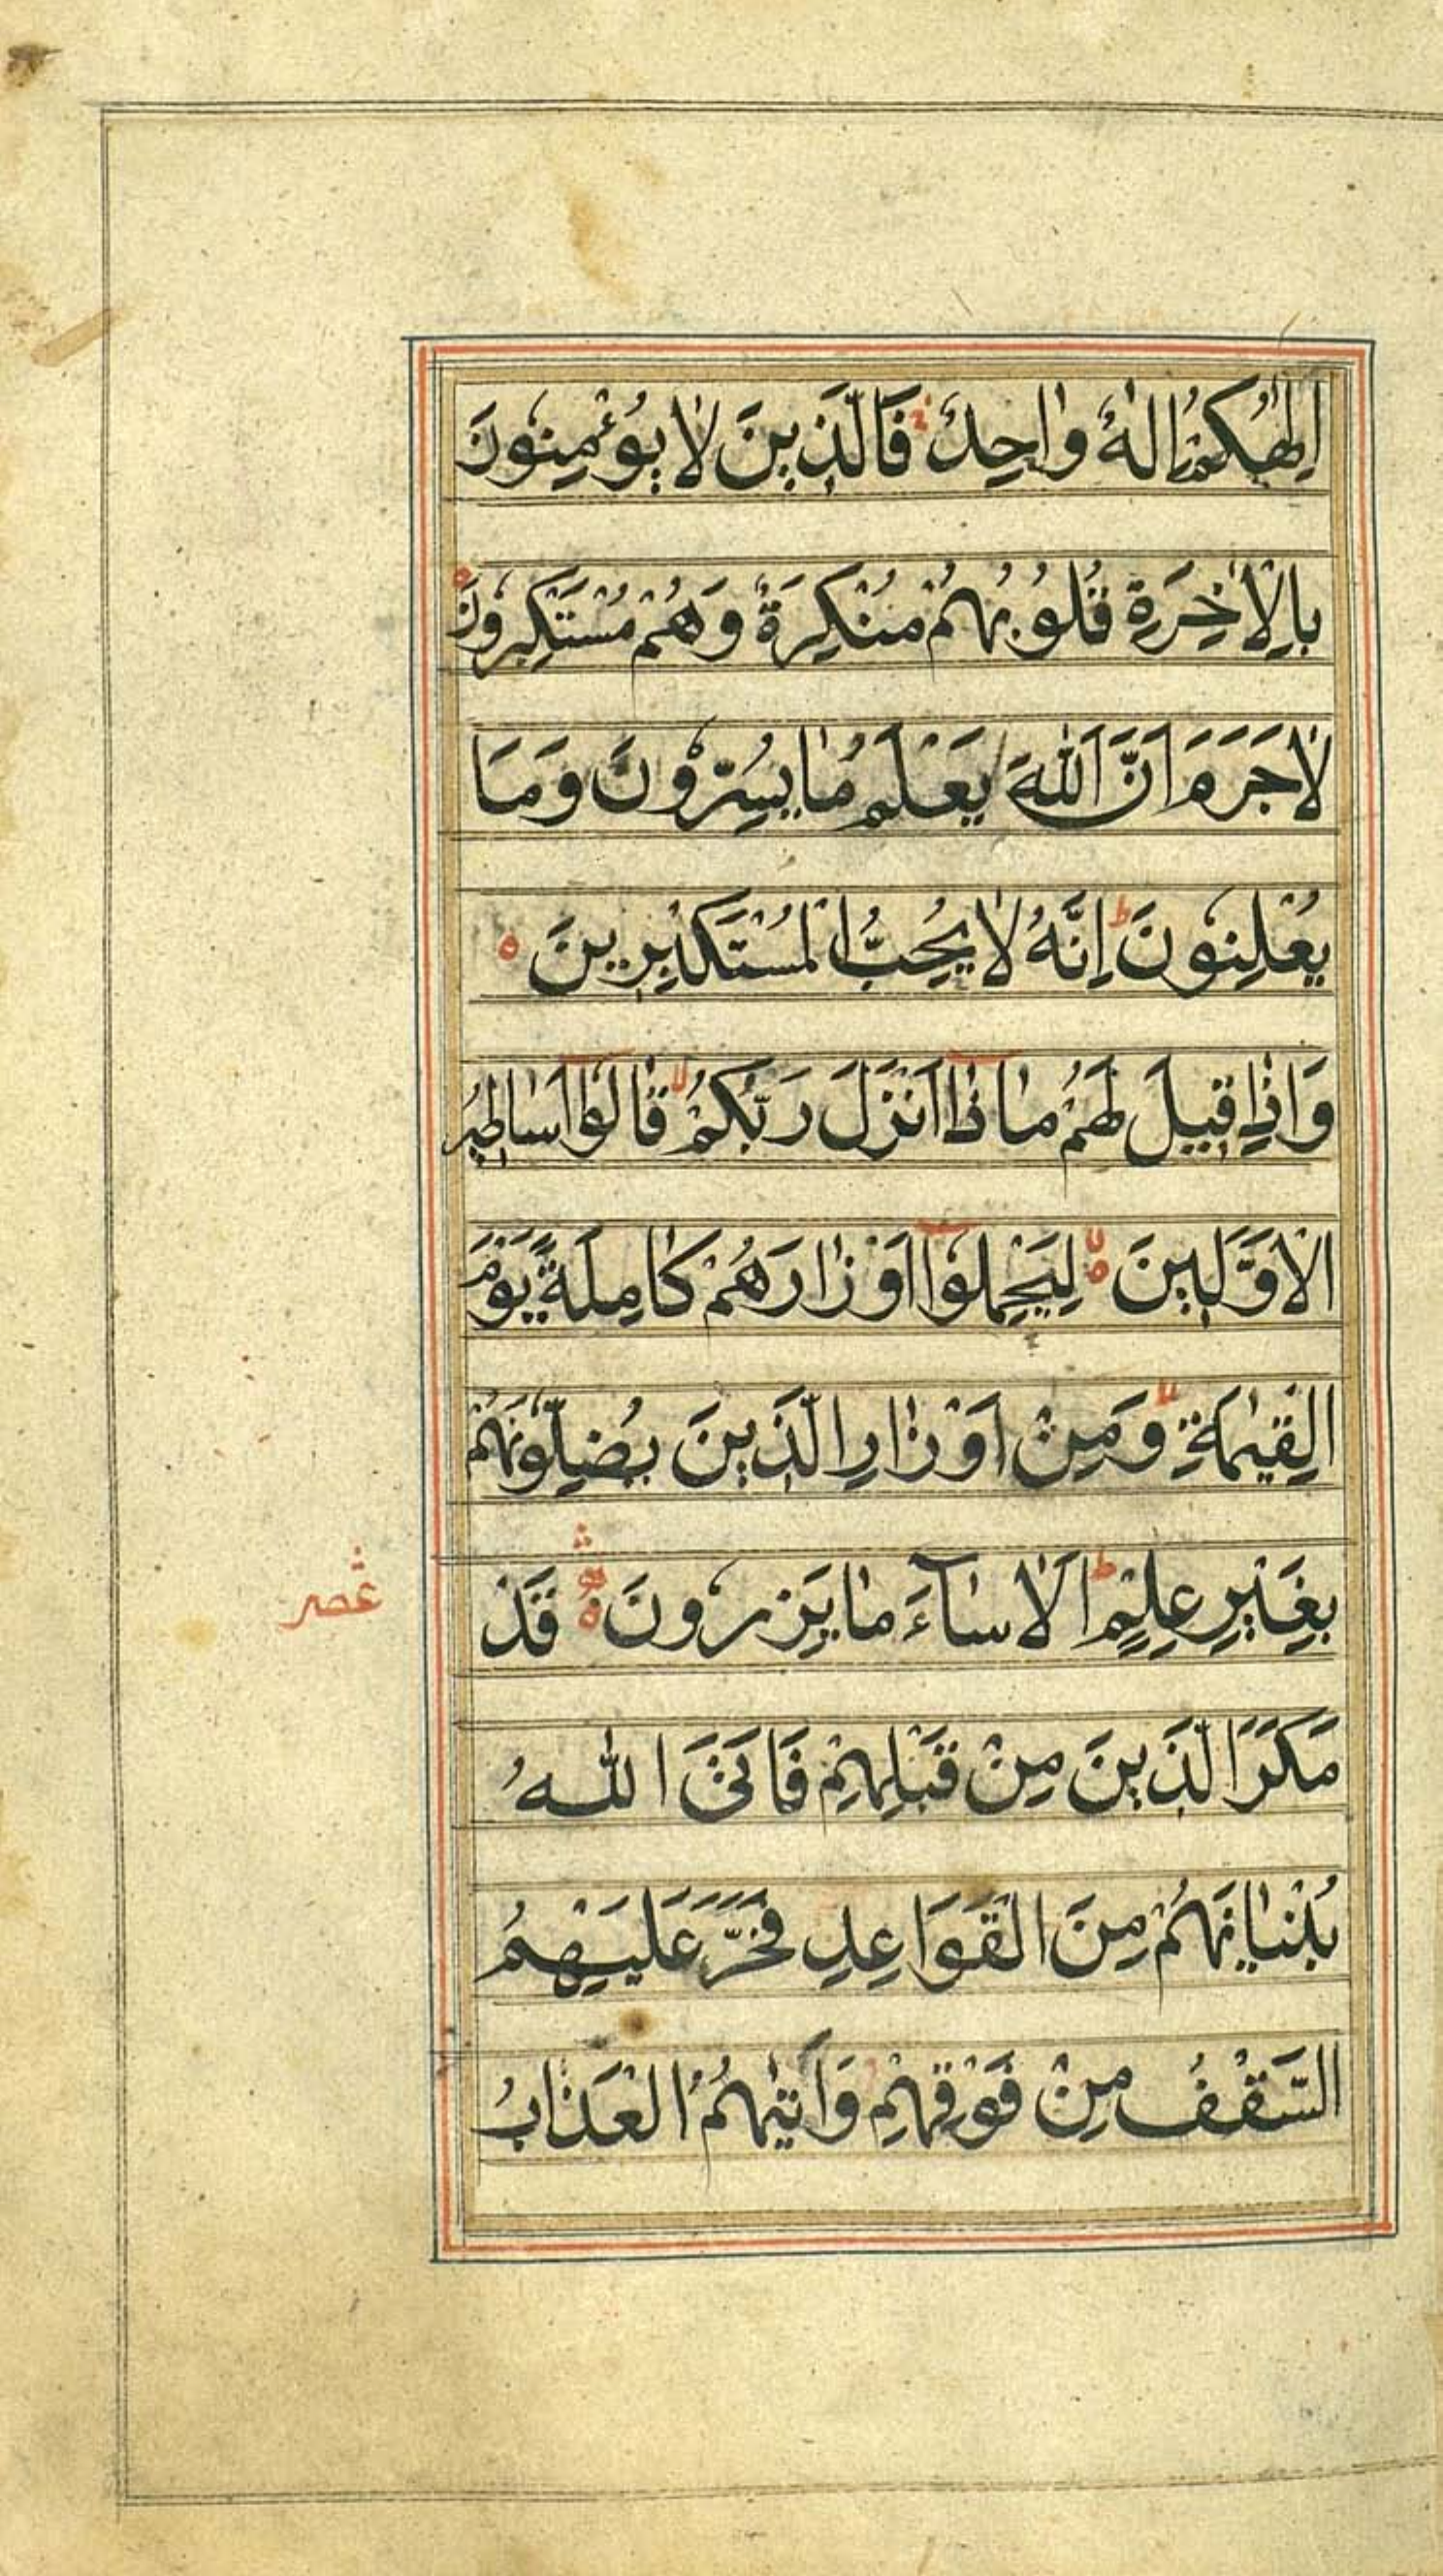 اِلٰهُكُمْ اِلٰهٌ وٰاحِدٌ فَالَّذِينَ لاٰ يُؤْمِنُونَ
بِالْاٰخِرَةِ قُلُوبُهُمْ مُنْكِرَةٌ وَهُمْ مُسْتَكْبِرُونَ ه
لاٰ جَرَمَ اَنَّ اللّٰهَ يَعْلَمُ مٰا يُسِرُّونَ وَمَا
يُعْلِنُونَ ط اِنَّهُ لاٰ يُحِبُّ الْمُسْتَكْبِرِينَ ه
وَاِذٰا قِيلَ لَهُمْ مٰاذٰا اَنْزَلَ رَبُّكُمْ لا قٰالُوا اَسٰاطِيرُ
الْاَوَّلِينَ ه لا لِيَحْمِلُوا اَوْزٰارَهُمْ كٰامِلَةً يَوْمَ
الْقِيٰمَةِ لا وَمِنْ اَوْزٰارِ الَّذِينَ يُضِلُّونَهُمْ
بِغَيْرِ عِلْمٍ ط اَلاٰ سٰآءَ مٰا يَزِرُونَ ه قَدْ
عشر
مَكَرَ الَّذِينَ مِنْ قَبْلِهِمْ فَاَتَى اللّٰهُ
بُنْيٰانَهُمْ مِنَ الْقَوَاعِدِ فَخَرَّ عَلَيْهِمُ
السَّقْفُ مِنْ فَوْقِهِمْ وَاَتٰيهُمُ الْعَذٰابُ